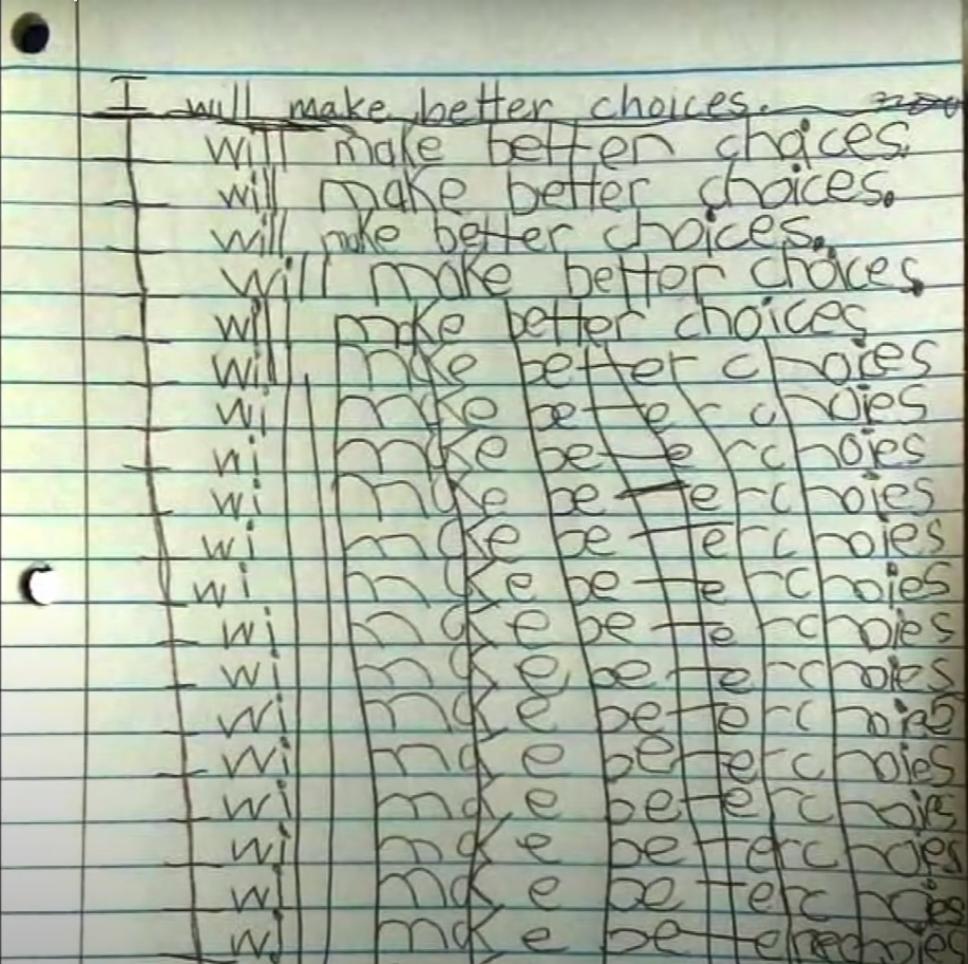 I will make better choices.
I will make better choices.
I will make better choices.
I will make better choices.
I will make better choices.
I will make better choices
I will make better choices
I will make better choies
I will make better choies
I will make better choies
I will make better choies
I will make better choies
I will make better choies
I will make better choies
I will make better choies
I will make better choies
I will make better choies
I will make better choies
I will make better choies
I will make